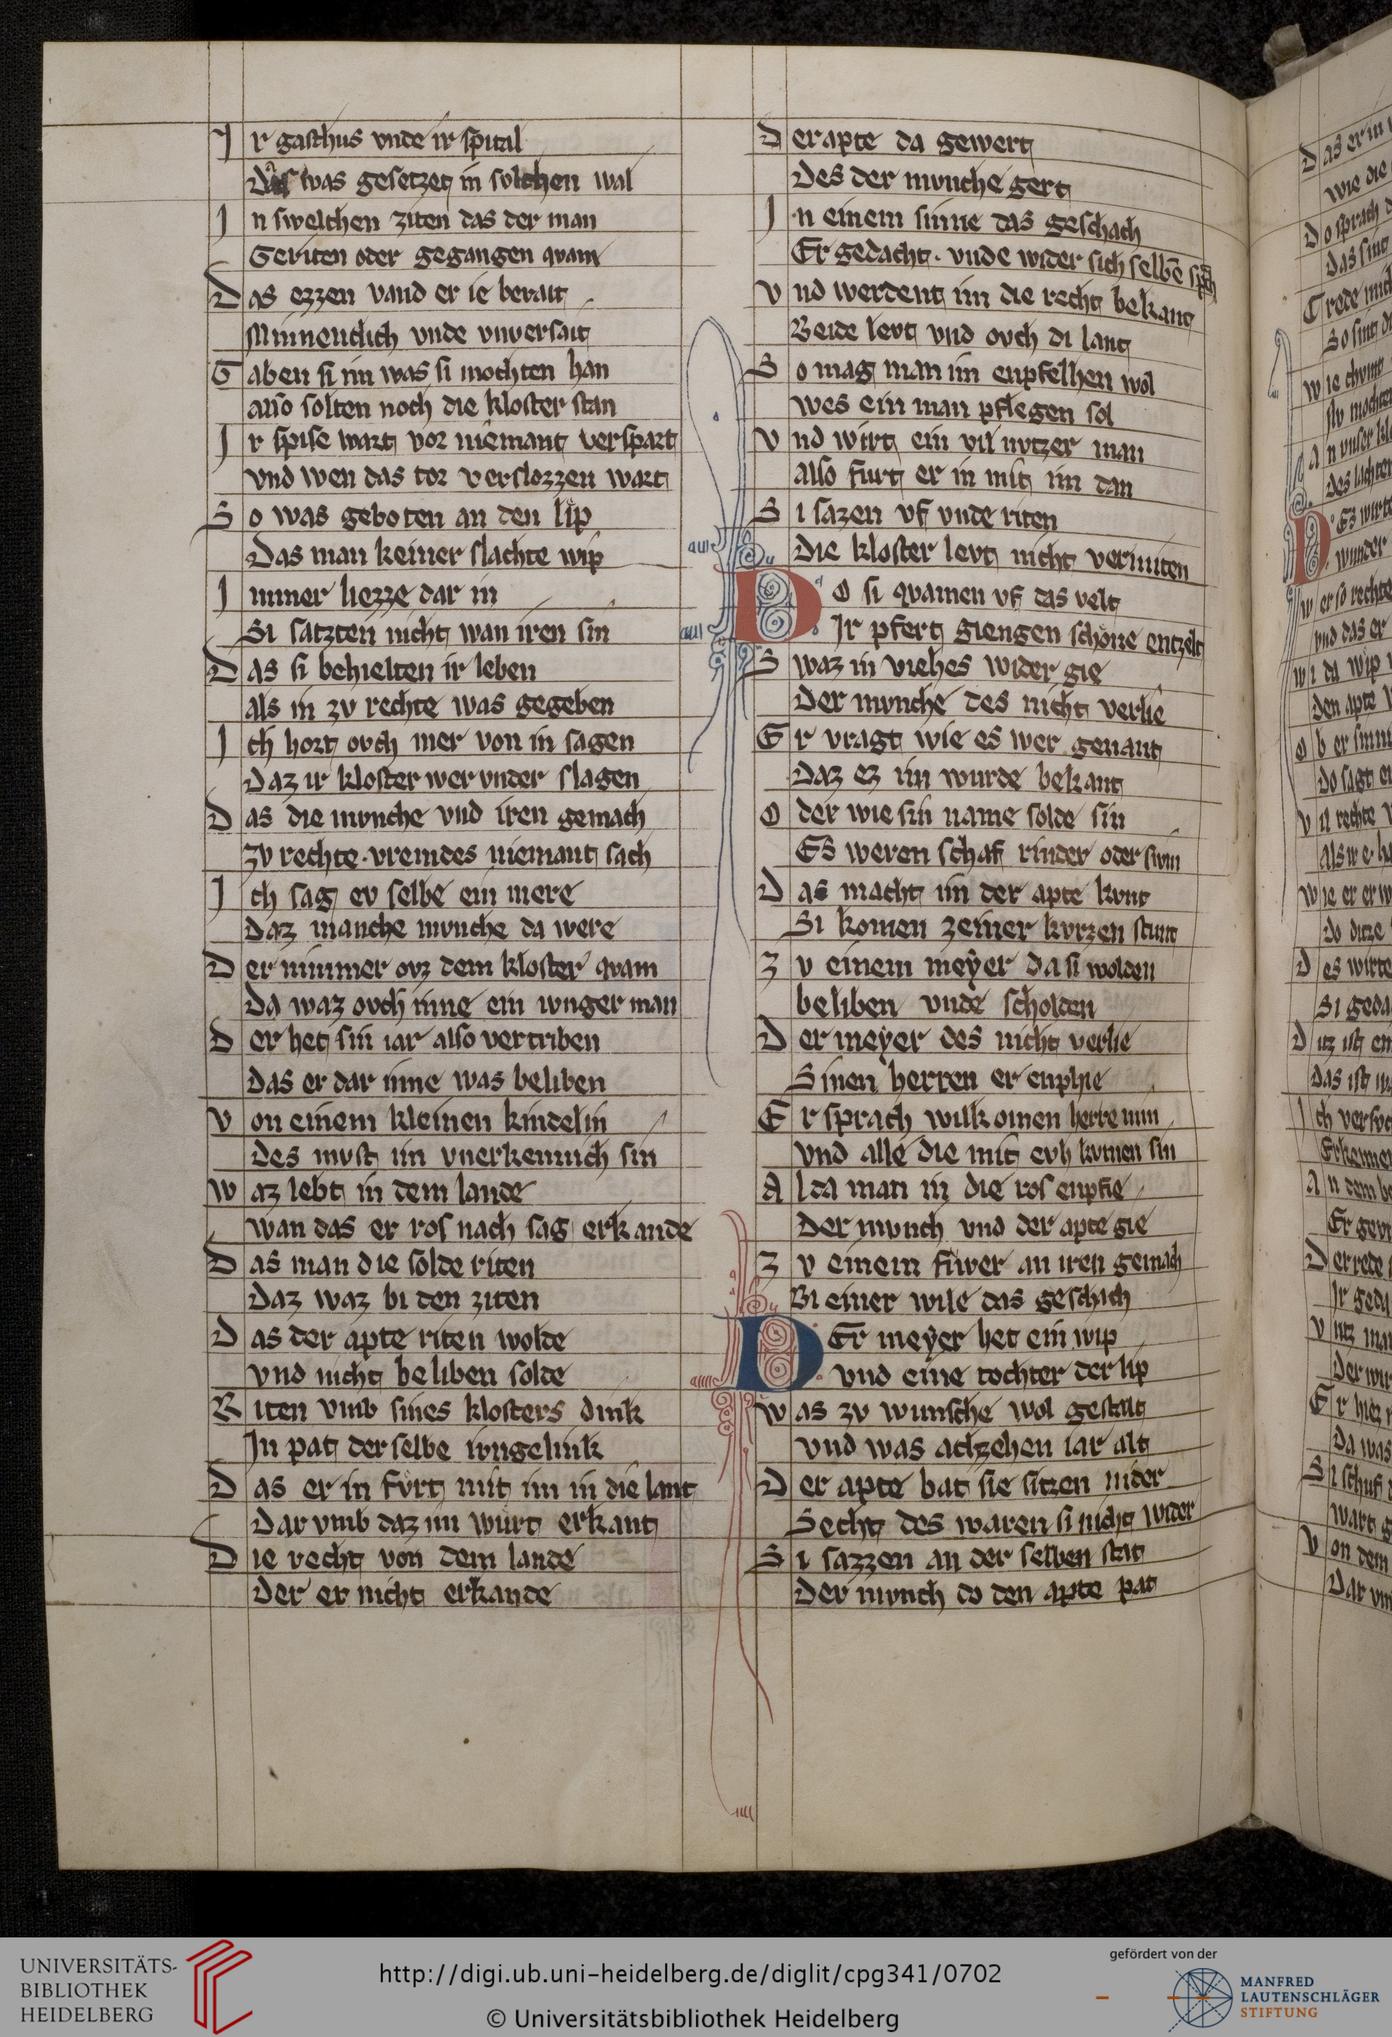 Ir gasthus vnde ir spital
Das was gesetzet in solchen wal
In swelchen ziten das der man
Geriten oder gegangen qvam
Das ezzen vand er ie berait
Minneclich vnde vnuersait
Gaben si im was si mochten han
also solten noch die kloster stan
Ir spise wart vor niemant verspart
vnd wen das tor verslozzen wart
So was geboten an den lip
Das man keiner slachte wip
Immer liezze dar in
Si satzten nicht wan iren sin
Das si behielten ir leben
als in zv rechte was gegeben
Ich hort ovch mer von in sagen
Daz ir kloster wer vnder slagen
Das die mvnche vnd iren gemach
zv rechte vremdes niemant sach
Ich sag ev selbe ein mere
Daz manche mvnche da were
Der nimmer ovz dem kloster qvam
Da waz ovch inne ein ivnger man
Der het sin iar also vertriben
Das er dar inne was beliben
von einem kleinen kindelin
des mvst im vnerkennich sin
waz lebt in dem lande
wan das er ros nach sag erkande
Das man die solde riten
Daz waz bi den ziten
Das der apte riten wolde
vnd nicht beliben solde
Riten vmb sines klosters dink
In pat der selbe ivngelink
Das er in fvrt mit im in die lant
Dar vmb daz im wurt erkant
Die recht von dem lande
Der er nicht erkande
Der apte da gewert
Des der mvnche gert
In einem sinne das geschach
Er gedacht vnde wider sich selbe sprach
vnd werdent im die recht bekant
Beide levt vnd ovch di lant
So mag man im enpfelhen wol
wes ein man pflegen sol
vnd wirt ein vil nvtzer man
also furt er in mit im dan
Si sazen vf vnde riten
die kloster levt nicht vermiten
Do si qvamen vf das velt
Ir pfert giengen schone entzelt
Swaz in viehes wider gie
Der mvnche des nicht verlie
Er vragt wie es wer genant
Daz ez im wurde bekant
Oder wie sin name solde sin
Es weren schaf rinder oder swin
Das macht im der apte kvnt
Si komen zeiner kvrzen stunt
zv einem meyer da si wolden
beliben vnde scholden
Der meyer des nicht verlie
Sinen herren er enphie
Er sprach willkomen herre min
vnd alle die mit evh kvmen sin
Alda man in die ros enpfie
Der mvnch vnd der apte gie
zv einem fiwer an iren gemach
Bi einer wile das geschach
Der meyer het ein wip
vnd eine tochter der lip
was zv wunsche wol gestalt
vnd was achzehen iar alt
Der apte bat sie sitzen nider
Secht des waren si nicht wider
Si sazzen an der selben stat
Der mvnch do den apte pat
UNIVERSITÄTS-
BIBLIOTHEK
HEIDELBERG
http://digi.ub.uni-heidelberg.de/diglit/cpg341/0702
© Universitätsbibliothek Heidelberg
gefördert von der
MANFRED
LAUTENSCHLÄGER
STIFTUNG